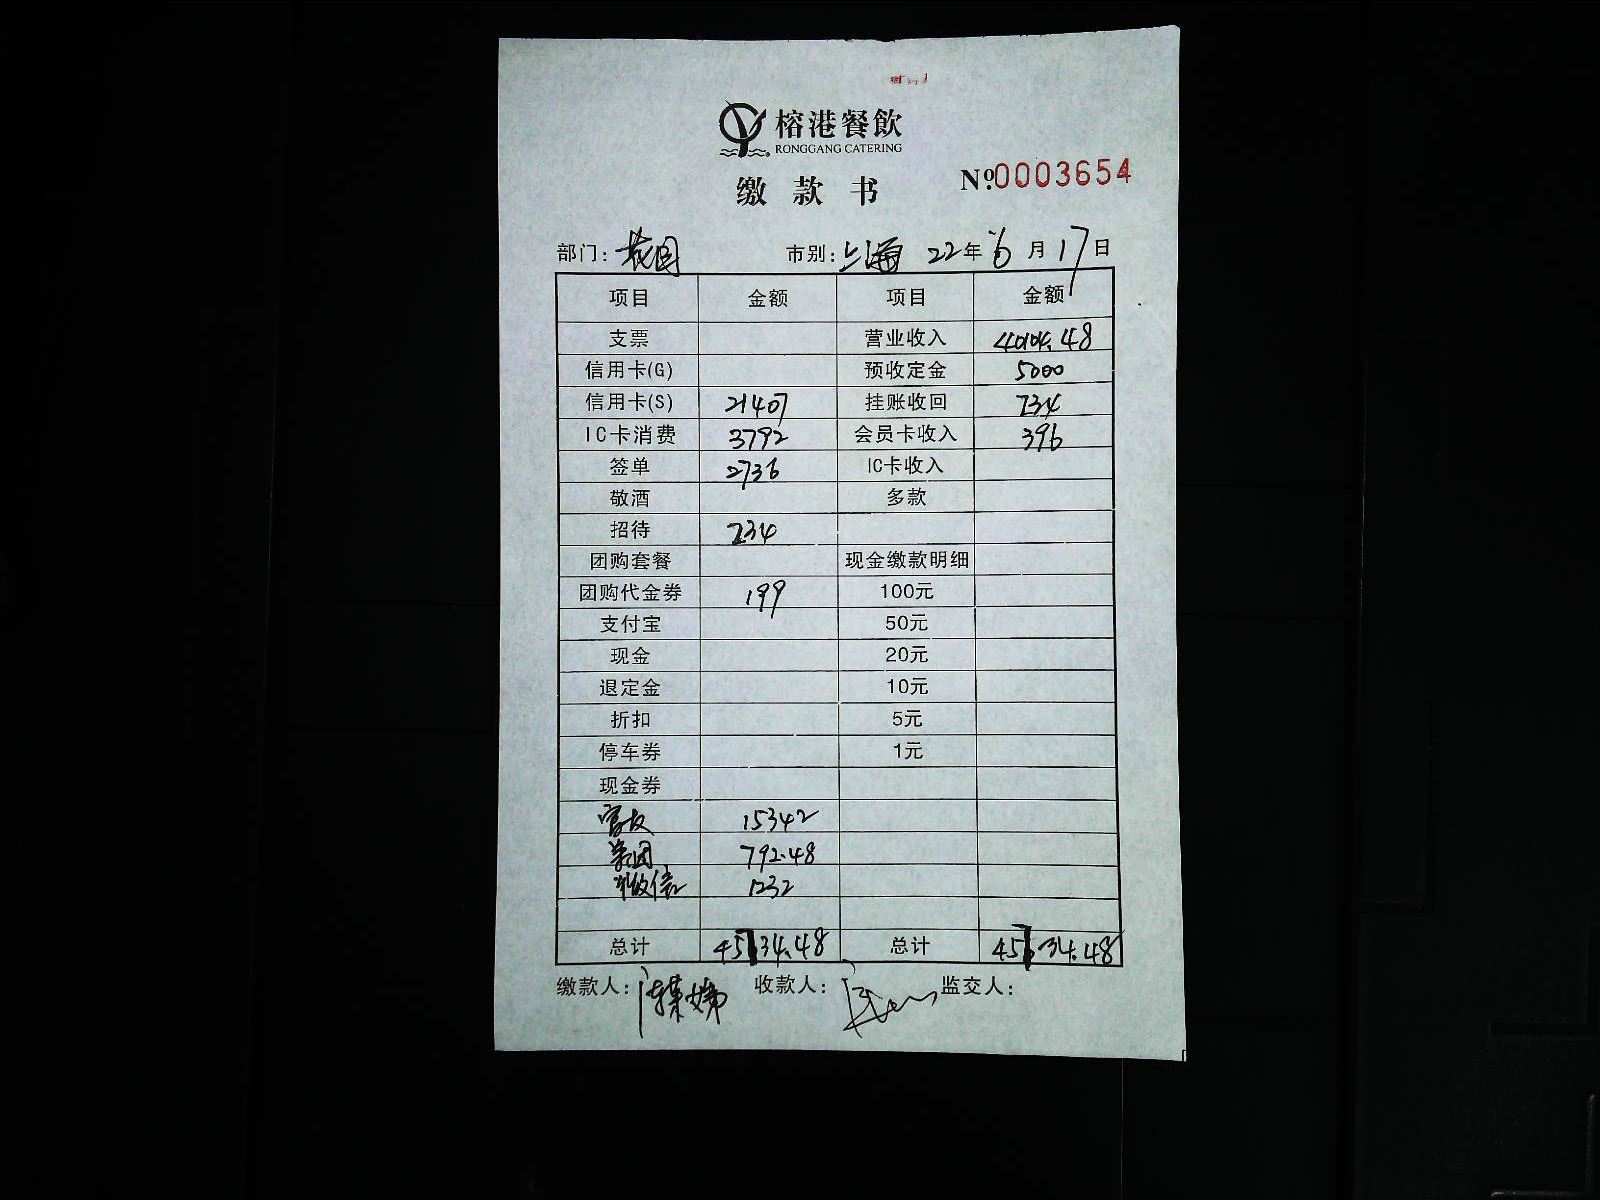 榕港餐飲
RONGGANG CATERING
缴款书 Nº:0003654
部门: 花园 市别: 上海 22年 6月 17日
项目 金额 项目 金额
支票 营业收入 40104.48
信用卡(G) 预收定金 5000
信用卡(S) 21407 挂账收回 234
IC卡消费 3792 会员卡收入 396
签单 2736 IC卡收入
敬酒 多款
招待 234
团购套餐 现金缴款明细
团购代金券 199 100元
支付宝 50元
现金 20元
退定金 10元
折扣 5元
停车券 1元
现金券
15342
美团 792.48
微信 1232
总计 45734.48 总计 45734.48
缴款人: 收款人: 监交人: